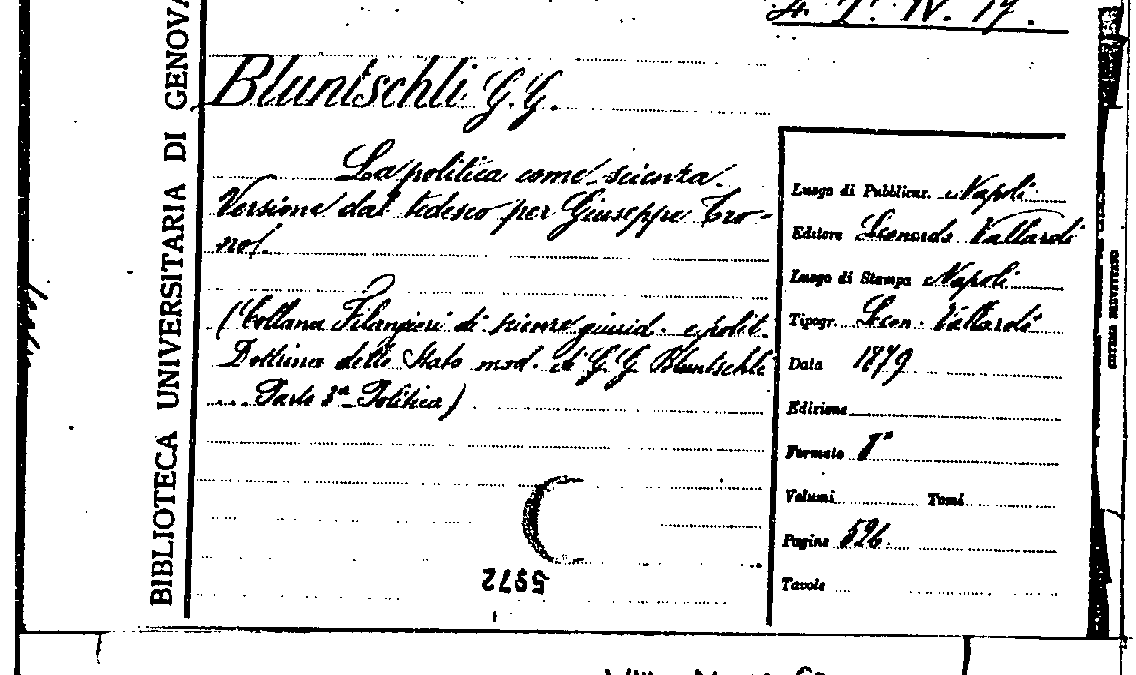 BIBLIOTECA UNIVERSITARIA DI GENOVA
Bluntschli G. G.
La politica come scienza.
Versione dal tedesco per Giuseppe Tro-
no.
(Collana Filangieri di scienze giurid. e polit.
Dottrina dello Stato mod. di G. G. Bluntschli
... Parte 3ª Politica)
5972
Luogo di Pubblicaz. Napoli
Editore Leonardo Vallardi
Luogo di Stampa Napoli
Tipogr. Leon. Vallardi
Data 1879
Edizione
Formato 8°
Volumi Tomi
Pagine 526.
Tavole